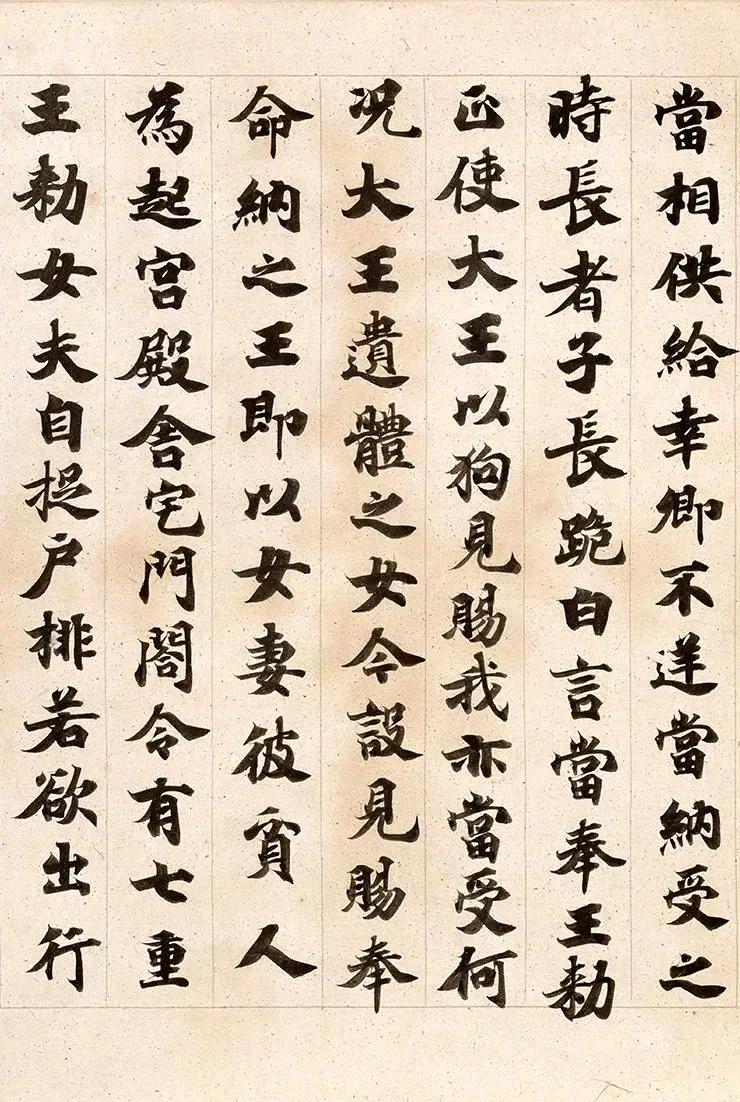 當相供給幸卿不逆當納受之
時長者子長跪白言當奉王勅
正使大王以狗見賜我亦當受何
況大王遺體之女今設見賜奉
命納之王即以女妻彼貧人
為起宮殿舍宅門閤令有七重
王勅女夫自捉户排若欲出行